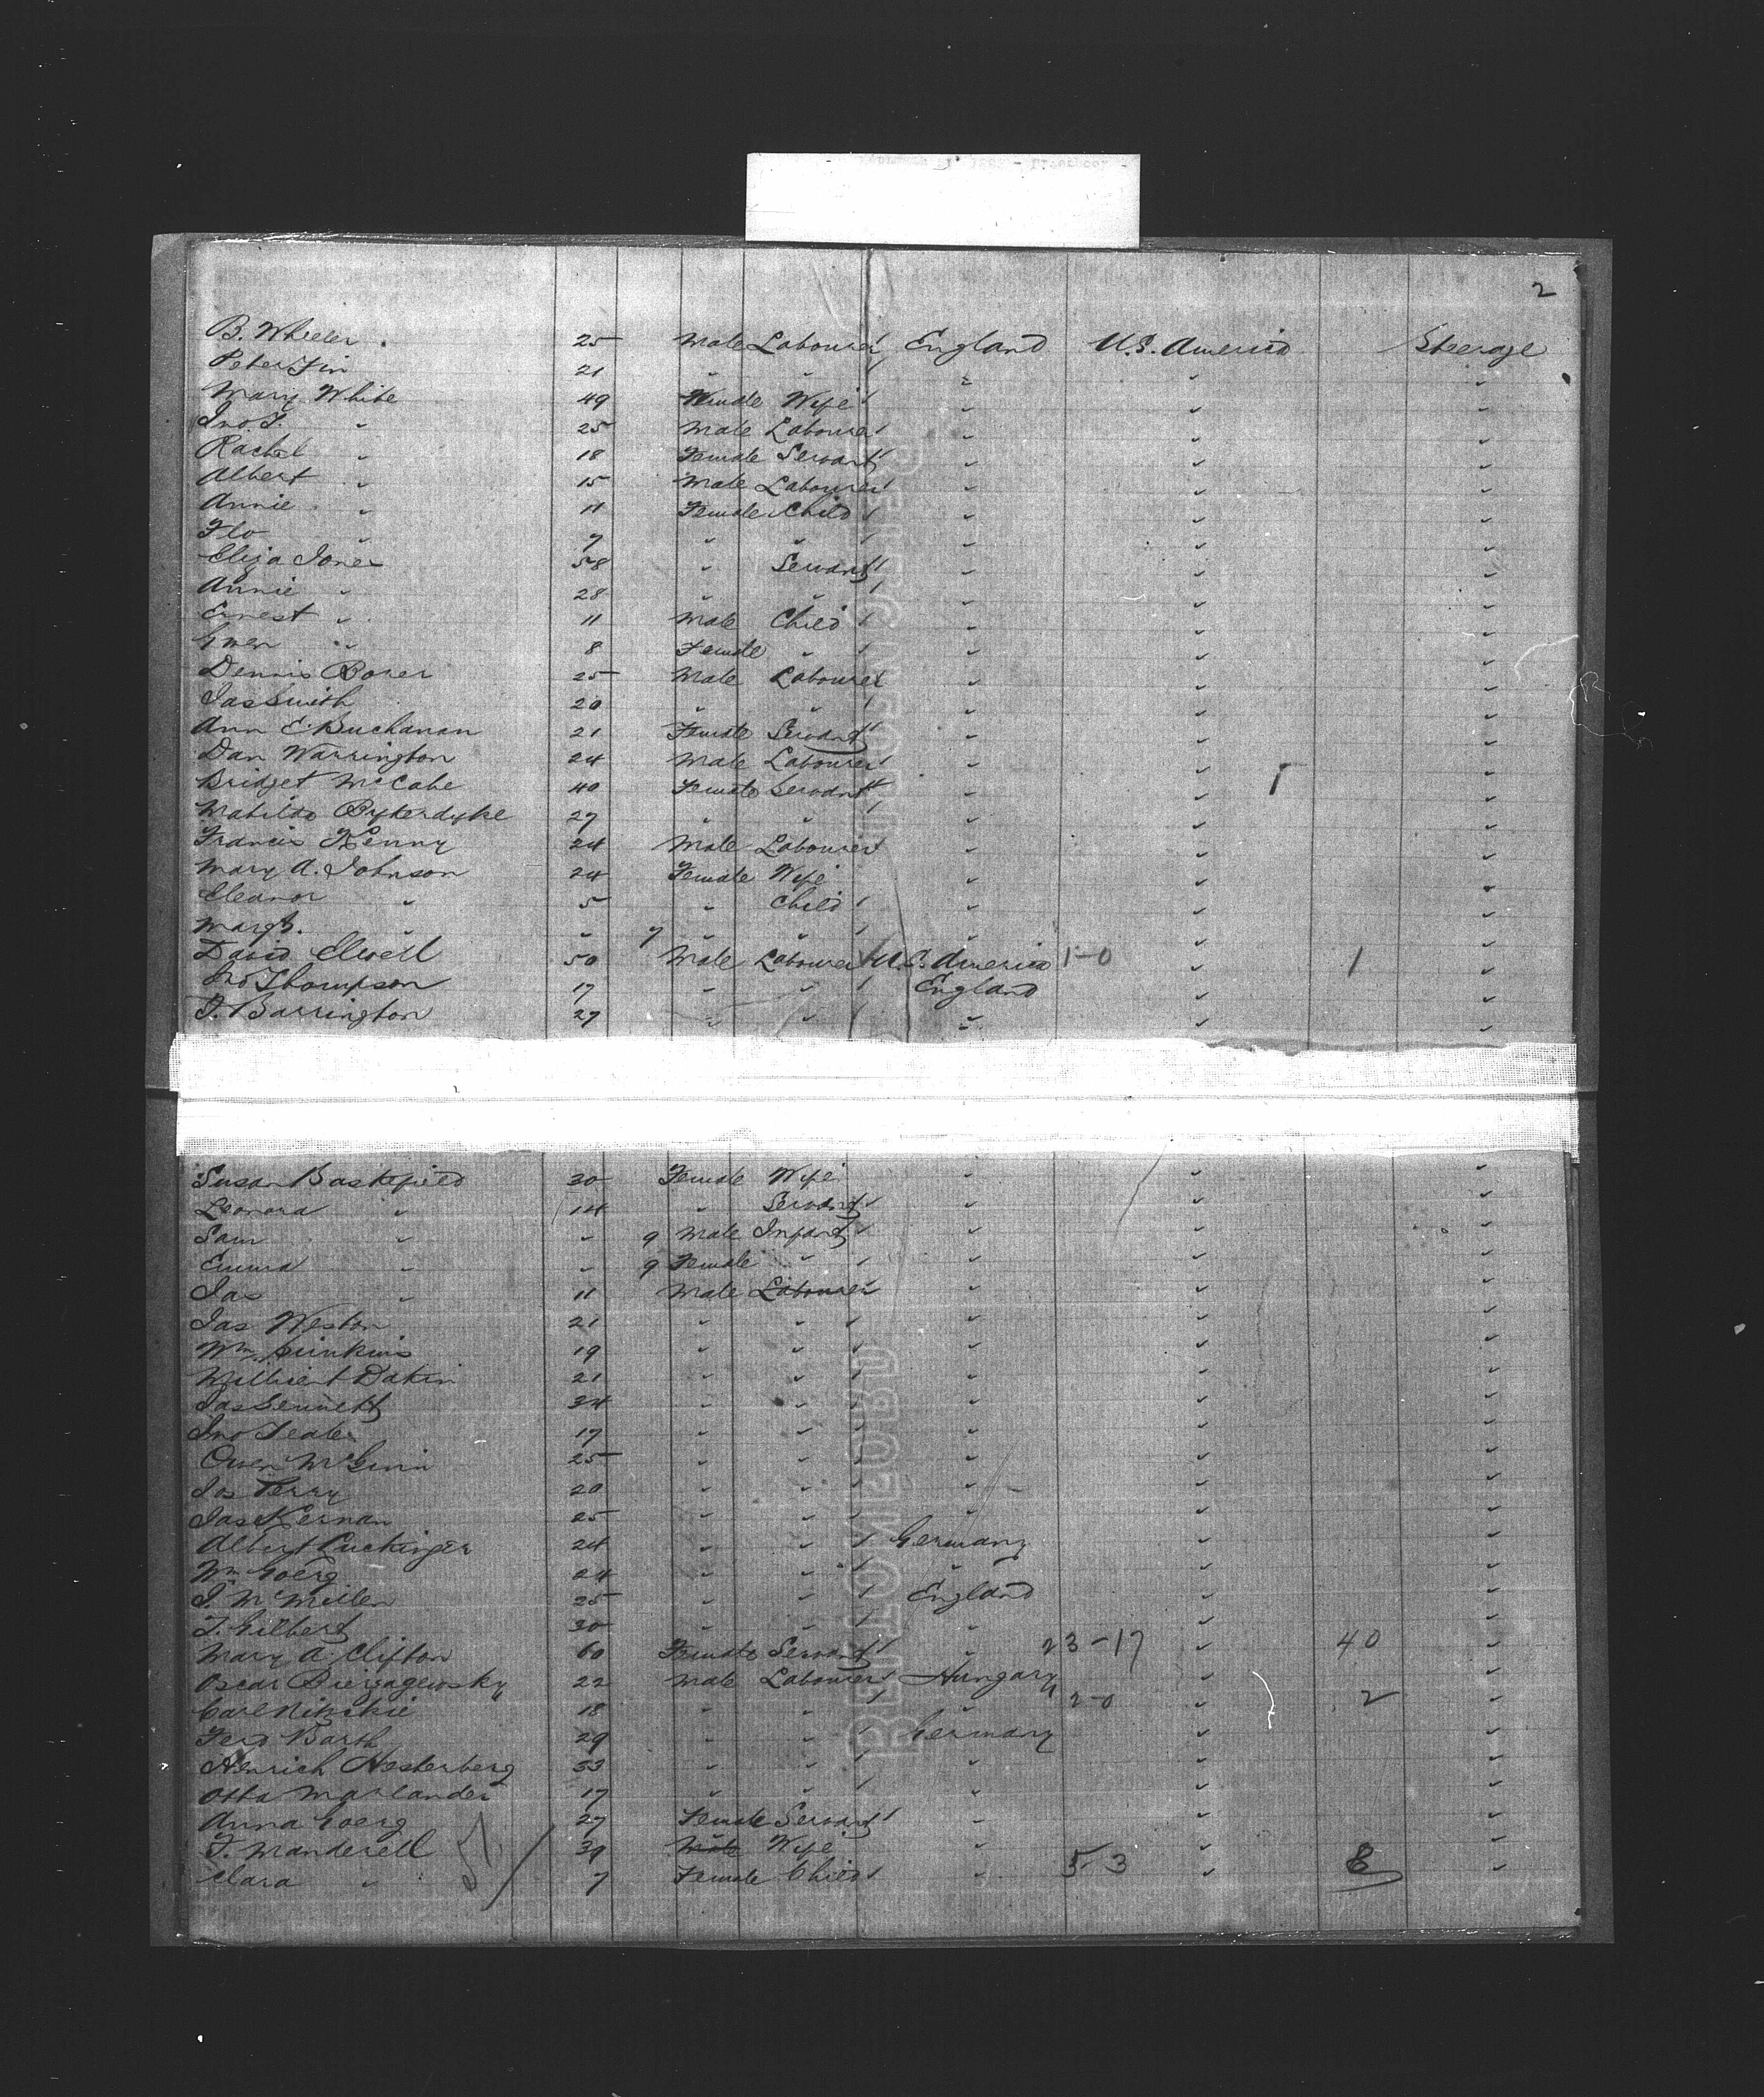 2
B. Wheeler 25 Male Labourer England U.S. America Steerage
Peter Fin 21 " " " " "
Mary White 49 Female Wife " " "
Jno. T. " 25 Male Labourer " " "
Rachel " 18 Female Servant " " "
Albert " 15 Male Labourer " " "
Annie " 11 Female Child " " "
Flo " 7 " " " " "
Eliza Jones 58 " Servant " " "
Annie " 28 " " " " "
Ernest " 11 Male Child " " "
Gwen " 8 Female " " " "
Dennis 25 Male Labourer " " "
Jas Smith 20 " " " " "
Ann E. Buchanan 21 Female Servant " " "
Dan Warrington 24 Male Labourer " " "
Bridget McCabe 40 Female Servant " " "
Matilda Byterdyke 27 " " " " "
Francis Kenny 24 Male Labourer " " "
Mary A. Johnson 24 Female Wife " " "
Eleanor " 5 " Child " " "
Margt. " " 7 " " " " "
David Elwell 50 Male Labourer U.S. America 1-0 " 1 "
Jno Thompson 17 " " England " "
T. Barrington 27 " " " " "
Susan Baskefield 30 Female Wife " " "
Leonora " 14 " Servant " " "
Sam " " 9 Male Infant " " "
Emma " " 9 Female " " " "
Jas " 11 Male Labourer " " "
Jas Weston 21 " " " " "
Wm Jinkins 19 " " " " "
Millicent Dakin 21 " " " " "
Jas Sennett 34 " " " " "
Jno 17 " " " " "
Owen McGinn 25 " " " " "
Jos Perry 20 " " " " "
Jas Kernan 25 " " " " "
Albert Luckinger 24 " " Germany " "
Wm Goerg 24 " " " " "
J. McMillen 25 " " England " "
T. Gilbert 30 " " " " "
Mary A. Clifton 60 Female Servant " 23-17 " 40 "
Oscar 22 Male Labourer Hungary " "
Carl 18 " " " 2-0 " 2 "
Ferd Barth 29 " " Germany " "
Henrich Hesterberg 33 " " " " "
Otto Marlander 17 " " " " "
Anna Goerg 27 Female Servant " " "
F. Manderell 39 Male Wife " " "
Clara " 7 Female Child " 5-3 " 8 "